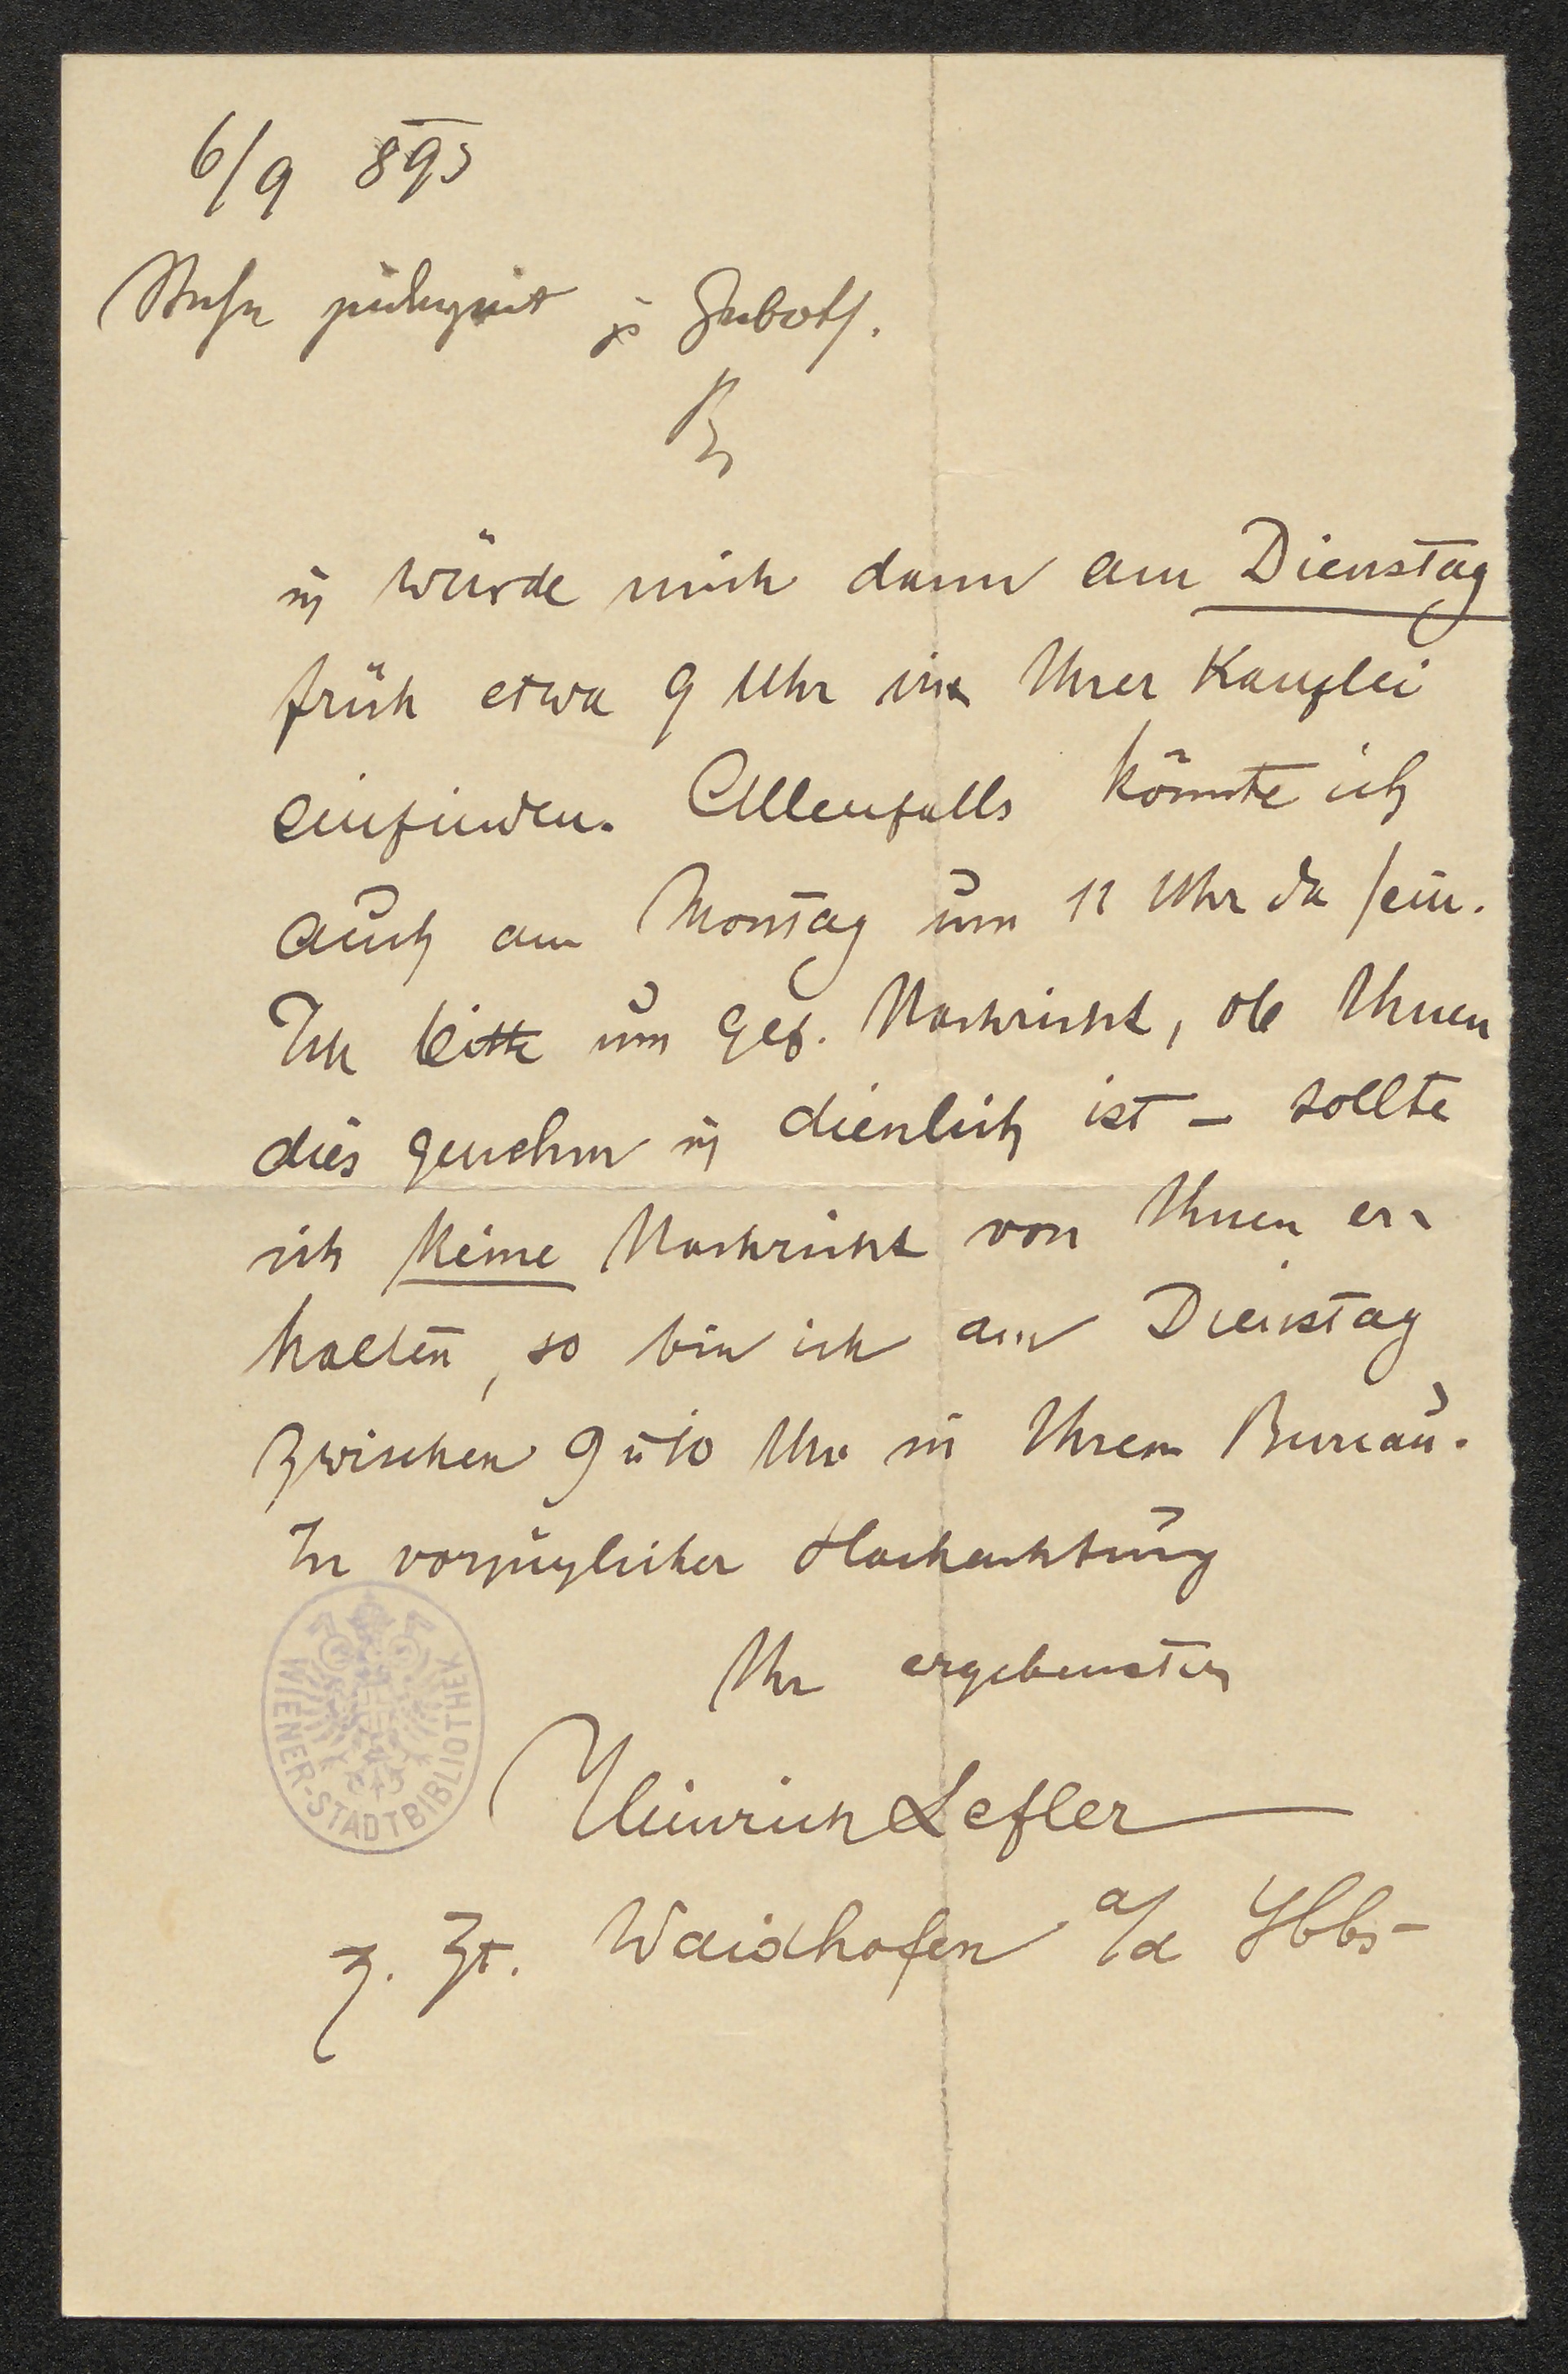 6/9 895
Stehe jederzeit zu Gebote.
u würde mich dann am Dienstag
früh etwa 9 Uhr in Ihrer Kanzlei
einfinden. Allenfalls könnte ich
auch am Montag um 11 Uhr da sein.
Ich bitte um gef. Nachricht, ob Ihnen
dies genehm u dienlich ist – sollte
ich keine Nachricht von Ihnen er-
halten, so bin ich am Dienstag
zwischen 9 u 10 Uhr in Ihrem Bureau.
In vorzüglicher Hochachtung
Ihr ergebenster
Heinrich Lefler
z. Zt. Waidhofen a/d Ybbs
WIENER-STADTBIBLIOTHEK